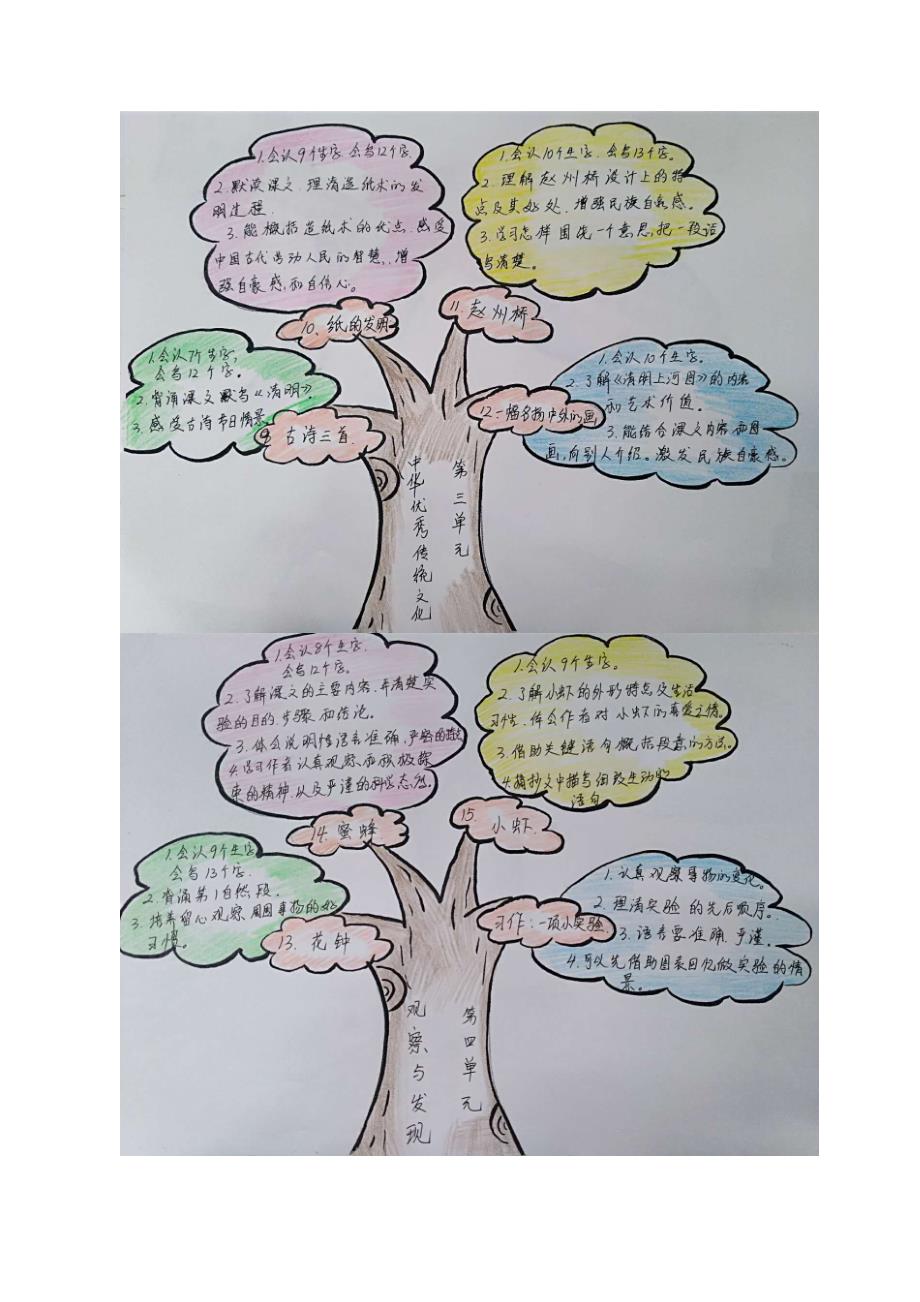 1.会认9个生字.会写12个字.
2.默读课文.理清造纸术的发
明过程.
3.能概括造纸术的优点.感受
中国古代劳动人民的智慧,增
强自豪感,和自信心。
1.会认10个生字.会写13个字。
2.理解赵州桥设计上的特
点及其好处.增强民族自豪感。
3.学习怎样围绕一个意思,把一段话
写清楚。
10、纸的发明
11.赵州桥
1.会认7个生字,
会写12个字。
2.背诵课文默写《清明》
3.感受古诗节日情景
9 古诗三首.
1.会认10个生字。
2.了解《清明上河图》的内容
和艺术价值。
3.能结合课文内容和图
画,向别人介绍。激发民族自豪感。
12一幅名扬中外的画
第三单元
中华优秀传统文化
1.会认8个生字.
会写12个字。
2.了解课文的主要内容.弄清楚实
验的目的.步骤.和结论。
3.体会说明性语言准确.严格的
4.学习作者认真观察.和积极探
索的精神.以及严谨的科学态度。
1.会认9个生字。
2.了解小虾的外形特点及生活
习性.体会作者对小虾的喜爱之情。
3.借助关键语句概括段意的方法。
4.摘抄文中描写细致生动的
语句
14.蜜蜂
15.小虾.
1.会认9个生字
会写13个字.
2.背诵第1自然段.
3.培养留心观察.周围事物的好
习惯。
13.花钟
习作:一项小实验.
1.认真观察事物的变化。
2.理清实验的先后顺序。
3.语言要准确.严谨。
4.可以先借助图表回忆做实验的情
景。
第四单元
观察与发现